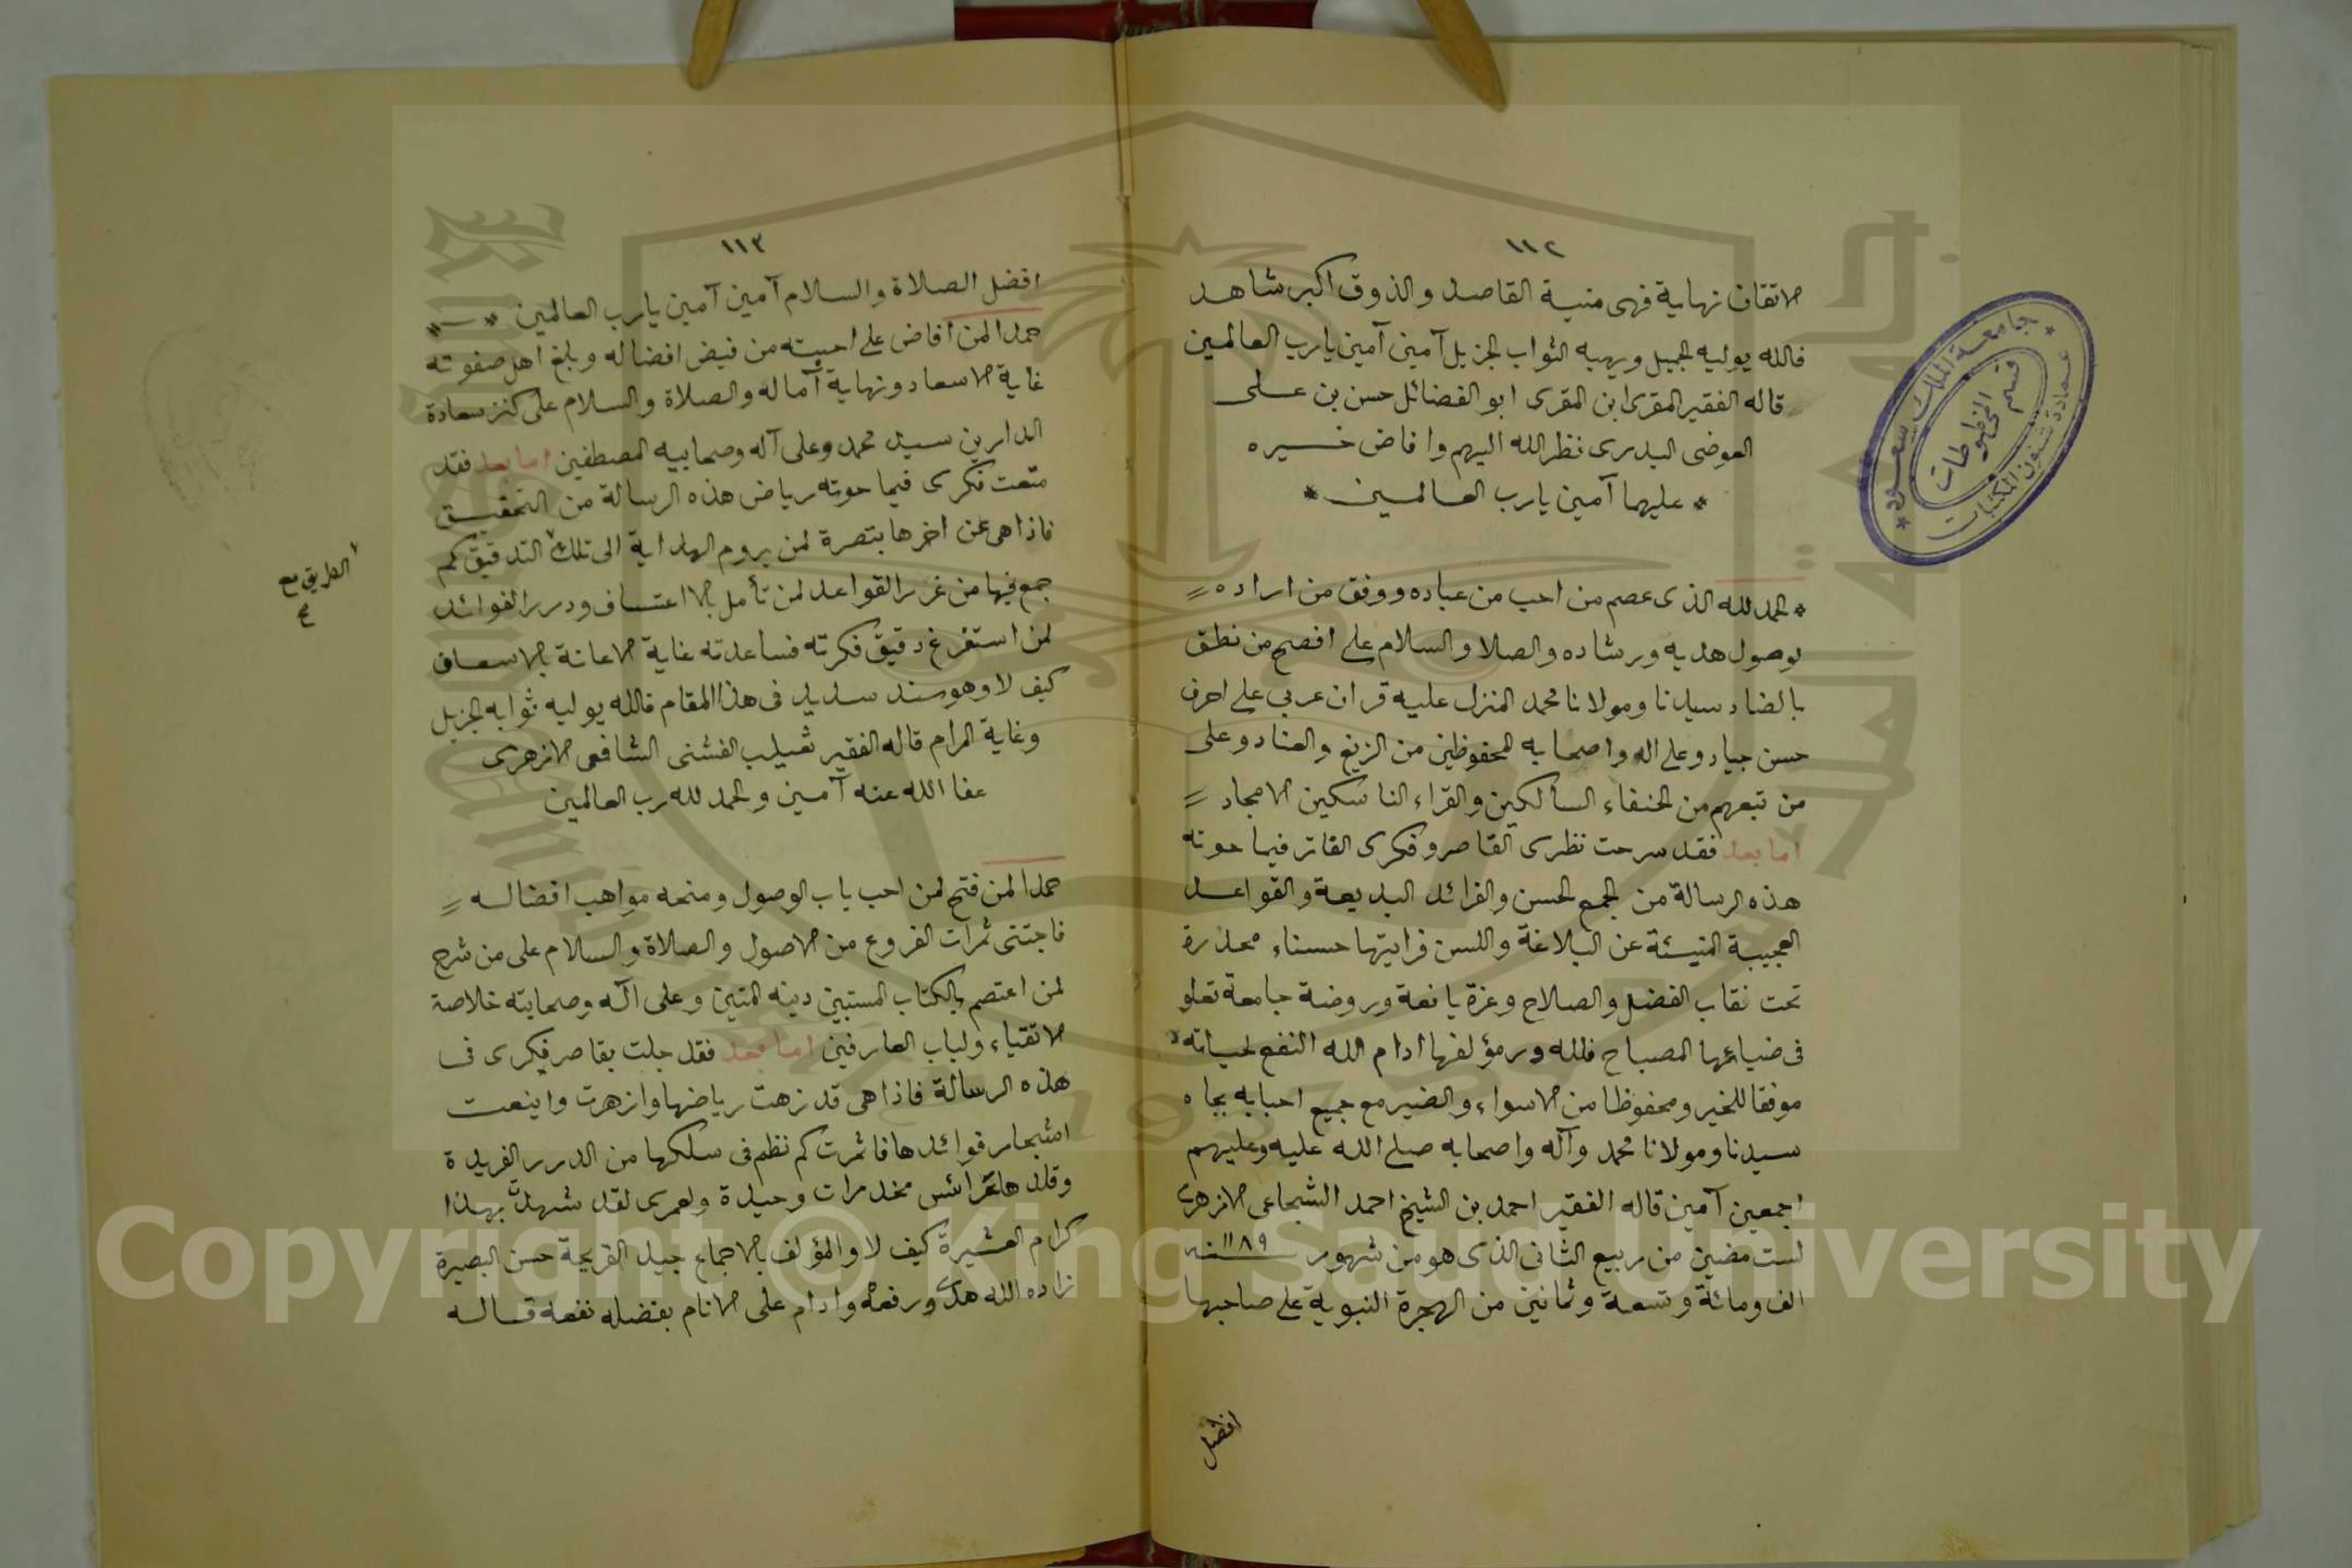 ١١٢
الاتقان نهاية فهى منية القاصد والذوق اكبر شاهد
فالله يوليه الجميل ويهبه الثواب الجزيل آمين آمين يارب العالمين
قاله الفقير المقرى ابن المقرى ابو الفضائل حسن بن على
العوضى البدرى نظر الله اليهم وافاض خيره
* عليهما آمين يارب العالمين *
* الحمد لله الذى عصم من احب من عباده ووفق من اراده =
لوصول هديه ورشاده والصلا والسلام على افصح من نطق
بالضاد سيدنا ومولانا محمد المنزل عليه قران عربي على احرف
حسن جياد وعلى اله واصحابه المحفوظين من الزيغ والعناد وعلى
من تبعهم من الحنفاء السالكين والقراء الناسكين الامجاد =
اما بعد فقد سرحت نظرى القاصر وفكرى الفاتر فيما حوته
هذه الرسالة من الجمع الحسن والفرائد البديعة والقواعد
العجيبة المنبئة عن البلاغة واللسن فرايتها حسناء مخدرة
تحت نقاب الفضل والصلاح وغزة يانعة وروضة جامعة تعلو
فى ضيائها المصباح فلله در مؤلفها ادام الله النفع لحياته
موفقا للخير ومحفوظا من الاسواء والضير مع جميع احبابه بجاه
سيدنا ومولانا محمد وآله واصحابه صلى الله عليه وعليهم
اجمعين آمين قاله الفقير احمد بن الشيخ احمد الشجاعى الازهرى
لست مضين من ربيع الثانى الذى هو من شهور ١١٨٩ سنة
الف ومائة وتسعة وثمانين من الهجرة النبوية على صاحبها
افضل
جامعة الملك سعود
قسم المخطوطات
عمادة شئون المكتبات
١١٣
افضل الصلاة والسلام آمين آمين يارب العالمين * ـ *
حمدا لمن افاض على احبته من فيض افضاله وبلغ اهل صفوته
غاية الاسعاد ونهاية آماله والصلاة والسلام على كنز سعادة
الدارين سيد محمد وعلى آله وصحابيه المصطفين اما بعد فقد
متعت فكرى فيما حوته رياض هذه الرسالة من التحقيق
فاذا هى عن اخرها بتصرة لمن يروم الهداية الى تلك التدقيق كم
جمع فيها من غرر القواعد لمن تأمل بلا اعتساف ودرر الفوائد
لمن استفرغ دقيق فكرته فساعدته غاية الاعانة بالاسعاف
كيف لا وهو سند سديد فى هذا المقام فالله يوليه ثوابه الجزيل
وغاية المرام قاله الفقير ثعيلب الفشنى الشافعى الازهرى
عفا الله عنه آمين والحمد لله رب العالمين
الطريق مع
صح
حمدا لمن فتح لمن احب باب الوصول ومنحه مواهب افضاله =
فاجتنى ثمرات الفروع من الاصول والصلاة والسلام على من شرح
لمن اعتصم بالكتاب المستبين دينه المتين وعلى آله وصحابته خلاصة
الاتقياء ولباب العارفين اما بعد فقد جلت بقاصر فكرى فى
هذه الرسالة فاذا هى قد زهت رياضها وازهرت واينعت
اشجار فوائدها فاثمرت كم نظم فى سلكها من الدرر الفريدة
وقلدها عرائس مخدرات وحيدة ولعمرى لقد شهد بهذا
كرام العشيرة كيف لا والمؤلف بالاجماع جيد القريحة حسن البصيرة
زاده الله هدى ورفعه وادام على الانام بفضله نفعه قاله
Copyright © King Saud University